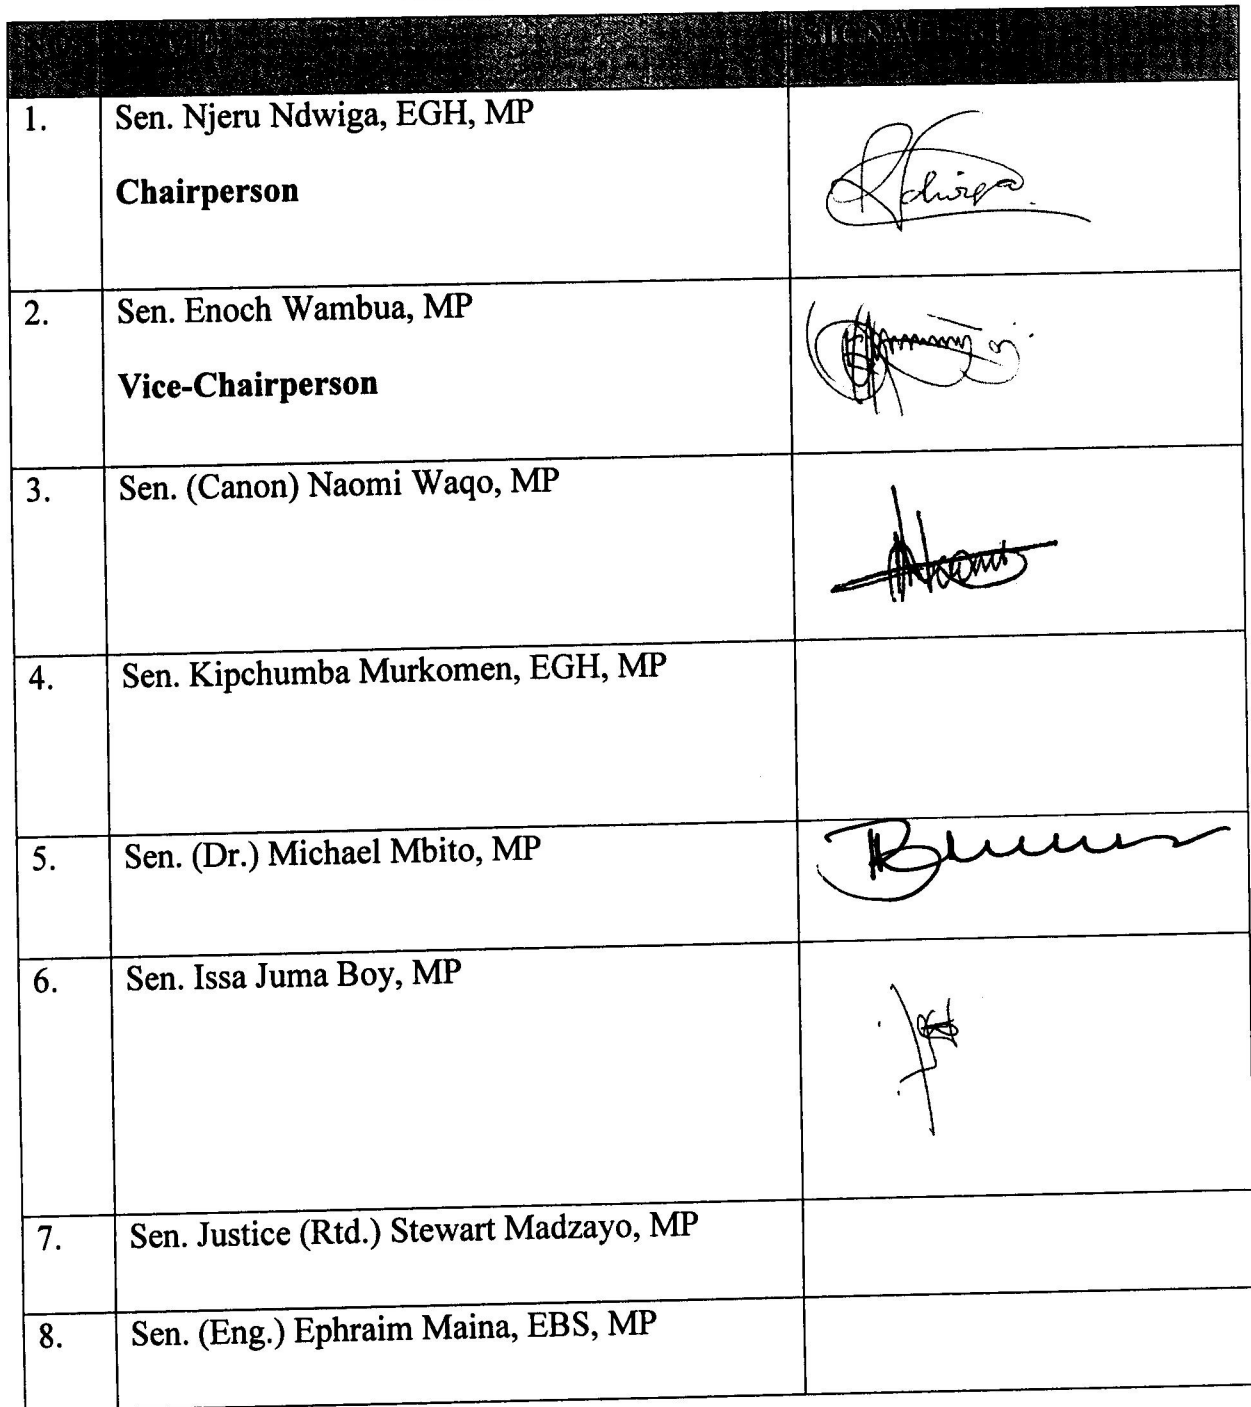 1. Sen. Njeru Ndwiga, EGH, MP
Chairperson
2. Sen. Enoch Wambua, MP
Vice-Chairperson
3. Sen. (Canon) Naomi Waqo, MP
4. Sen. Kipchumba Murkomen, EGH, MP
5. Sen. (Dr.) Michael Mbito, MP
6. Sen. Issa Juma Boy, MP
7. Sen. Justice (Rtd.) Stewart Madzayo, MP
8. Sen. (Eng.) Ephraim Maina, EBS, MP